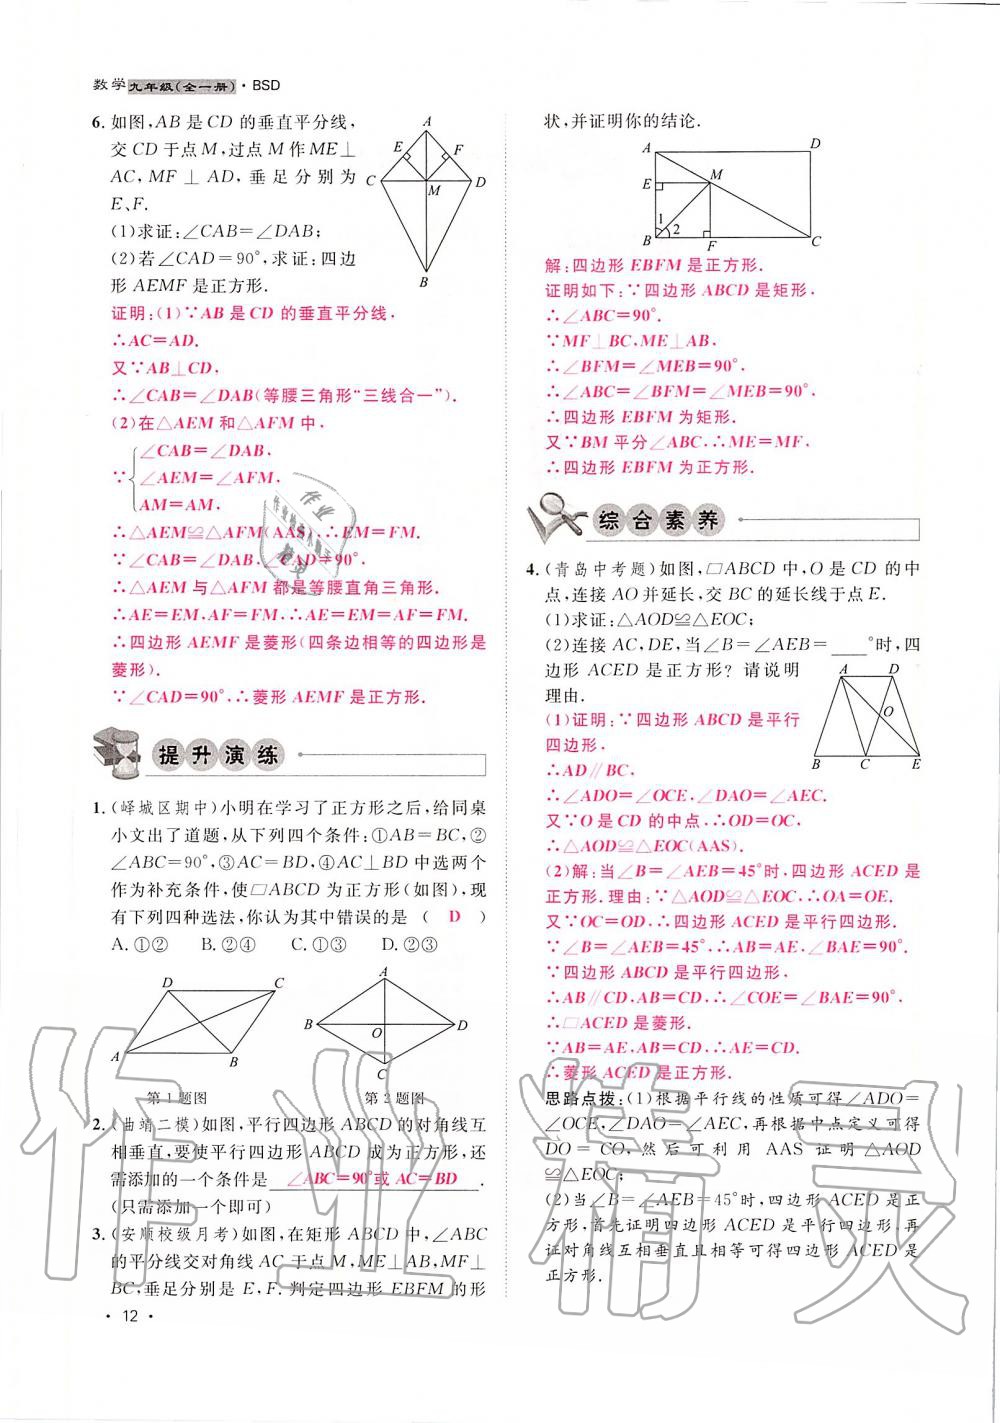 数学九年级(全一册)·BSD
6. 如图,AB 是 CD 的垂直平分线,
交 CD 于点 M,过点 M 作 ME⊥
AC,MF⊥AD,垂足分别为
E、F.
(1)求证:∠CAB=∠DAB;
(2)若∠CAD=90°,求证:四边
形 AEMF 是正方形.
A
E
F
C
M
D
B
证明:(1)∵AB 是 CD 的垂直平分线,
∴AC=AD.
又∵AB⊥CD,
∴∠CAB=∠DAB(等腰三角形“三线合一”).
(2)在△AEM 和△AFM 中,
∠CAB=∠DAB,
∵ ∠AEM=∠AFM,
AM=AM,
∴△AEM≌△AFM(AAS),∴EM=FM.
又∵∠CAB=∠DAB,∠CAD=90°,
∴△AEM 与△AFM 都是等腰直角三角形.
∴AE=EM,AF=FM,∴AE=EM=AF=FM.
∴四边形 AEMF 是菱形(四条边相等的四边形是
菱形).
∵∠CAD=90°,∴菱形 AEMF 是正方形.
提升演练
1. (峄城区期中)小明在学习了正方形之后,给同桌
小文出了道题,从下列四个条件:①AB=BC,②
∠ABC=90°,③AC=BD,④AC⊥BD 中选两个
作为补充条件,使▱ABCD 为正方形(如图),现
有下列四种选法,你认为其中错误的是 ( D )
A. ①② B. ②④ C. ①③ D. ②③
D
C
A
B
第 1 题图
A
B
O
D
C
第 2 题图
2. (曲靖二模)如图,平行四边形 ABCD 的对角线互
相垂直,要使平行四边形 ABCD 成为正方形,还
需添加的一个条件是 ∠ABC=90°或 AC=BD .
(只需添加一个即可)
3. (安顺校级月考)如图,在矩形 ABCD 中,∠ABC
的平分线交对角线 AC 于点 M,ME⊥AB,MF⊥
BC,垂足分别是 E,F. 判定四边形 EBFM 的形
· 12 ·
状,并证明你的结论.
A
D
E
M
1
2
B
F
C
解:四边形 EBFM 是正方形.
证明如下:∵四边形 ABCD 是矩形,
∴∠ABC=90°.
∵MF⊥BC,ME⊥AB,
∴∠BFM=∠MEB=90°.
∴∠ABC=∠BFM=∠MEB=90°.
∴四边形 EBFM 为矩形.
又∵BM 平分∠ABC,∴ME=MF,
∴四边形 EBFM 为正方形.
综合素养
4. (青岛中考题)如图,▱ABCD 中,O 是 CD 的中
点,连接 AO 并延长,交 BC 的延长线于点 E.
(1)求证:△AOD≌△EOC;
(2)连接 AC,DE,当∠B=∠AEB=____°时,四
边形 ACED 是正方形?请说明
理由.
A
D
O
B
C
E
(1)证明:∵四边形 ABCD 是平行
四边形,
∴AD∥BC,
∴∠ADO=∠OCE,∠DAO=∠AEC.
又∵O 是 CD 的中点,∴OD=OC,
∴△AOD≌△EOC(AAS).
(2)解:当∠B=∠AEB=45°时,四边形 ACED 是
正方形.理由:∵△AOD≌△EOC,∴OA=OE.
又∵OC=OD,∴四边形 ACED 是平行四边形.
∵∠B=∠AEB=45°,∴AB=AE,∠BAE=90°.
∵四边形 ABCD 是平行四边形,
∴AB∥CD,AB=CD,∴∠COE=∠BAE=90°.
∴▱ACED 是菱形.
∵AB=AE,AB=CD,∴AE=CD.
∴菱形 ACED 是正方形.
思路点拨:(1)根据平行线的性质可得∠ADO=
∠OCE,∠DAO=∠AEC,再根据中点定义可得
DO=CO,然后可利用 AAS 证明△AOD
≌△EOC;
(2)当∠B=∠AEB=45°时,四边形 ACED 是正
方形,首先证明四边形 ACED 是平行四边形,再
证对角线互相垂直且相等可得四边形 ACED 是
正方形.
作业精灵